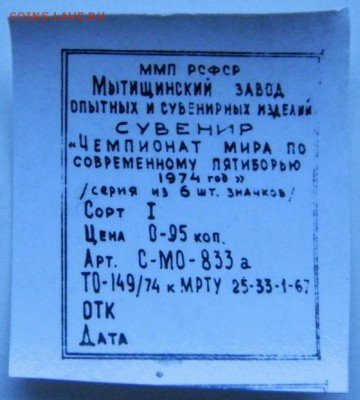 coins.lave.ru
ММП РСФСР
Мытищинский завод
опытных и сувенирных изделий
СУВЕНИР
«Чемпионат мира по
современному пятиборью
1974 год»
/серия из 6 шт. значков/
Сорт I
Цена 0-95 коп.
Арт. С-МО-833а
ТО-149/74 к МРТУ 25-33-1-67
ОТК
Дата